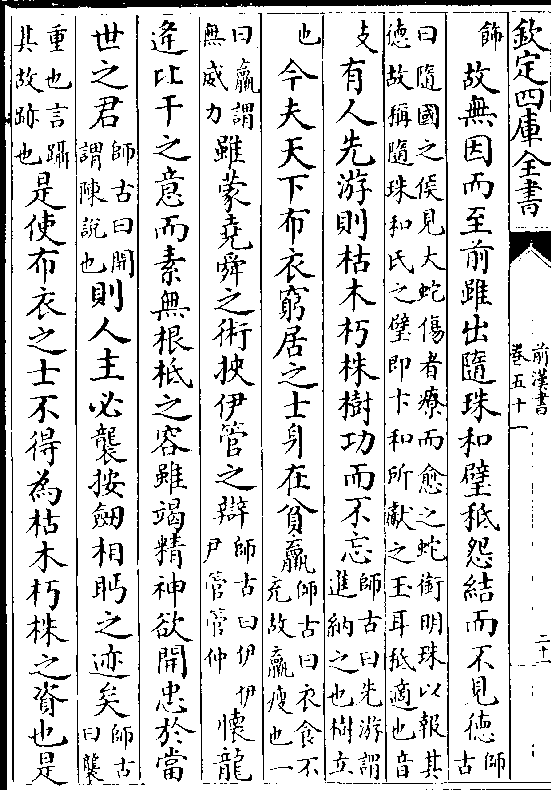 欽定四庫全書
前漢書
卷五十一
二十一
飾故無因而至前雖出隨珠和璧秪怨結而不見德師古
曰隨國之侯見大蛇傷者療而愈之蛇銜明珠以報其
德故稱隨珠和氏之璧即卞和所獻之玉耳秪適也音
支有人先游則枯木朽株樹功而不忘師古曰先游謂進納之也樹立
也今夫天下布衣窮居之士身在貧羸師古曰衣食不充故羸瘦也一
曰羸謂無威力雖蒙堯舜之術挾伊管之辯師古曰伊伊尹管管仲懷龍
逄比干之意而素無根柢之容雖竭精神欲開忠於當
世之君師古曰開謂陳說也則人主必襲按劒相眄之迹矣師古曰襲
重也言躡其故跡也是使布衣之士不得為枯木朽株之資也是